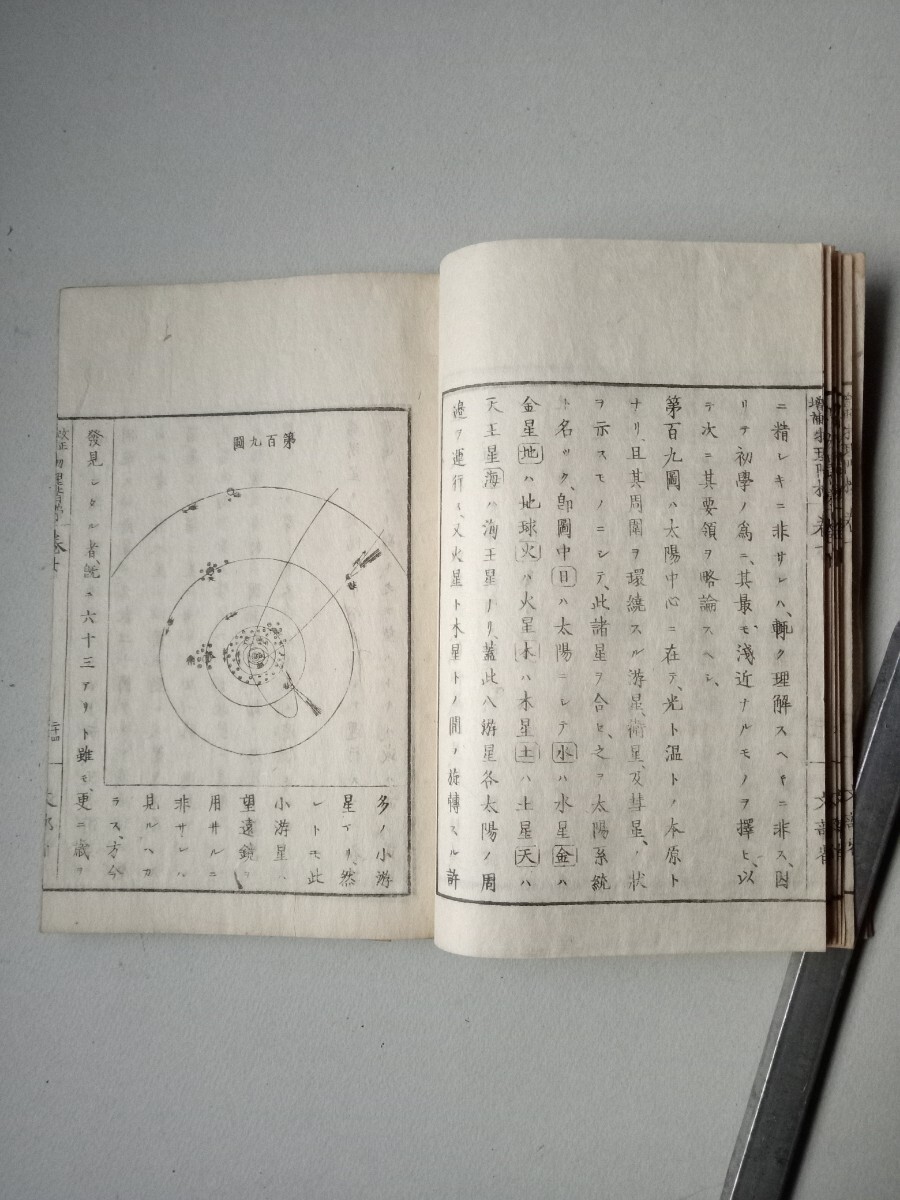 ニ精シキニ非サレハ、輙ク理解スヘキニ非ス、因
リテ初學ノ為ニ、其最モ、淺近ナルモノヲ擇ヒ、以
テ次ニ其要領ヲ略論スヘシ、
第百九圖ハ太陽中心ニ在テ、光ト温トノ本原ト
ナリ、且其周圍ヲ環繞スル游星、衛星、及彗星、ノ狀
ヲ示スモノニシテ、此諸星ヲ合セ、之ヲ太陽系統
ト名ツク、卽圖中日ハ太陽ニシテ水ハ水星金ハ
金星地ハ地球火ハ火星木ハ木星土ハ土星天ハ
天王星海ハ海王星ナリ、蓋此八游星各太陽ノ周
邊ヲ運行ス、又火星ト木星トノ間ノ旋轉スル許
第百九圖
多ノ小游
星アリ、然
レトモ此
小游星ハ
望遠鏡ヲ
用井サルニ
非サレハ
見ルヘカ
ラス、方今
發見シタル者旣ニ六十三アリト雖モ、更ニ歲ヲ